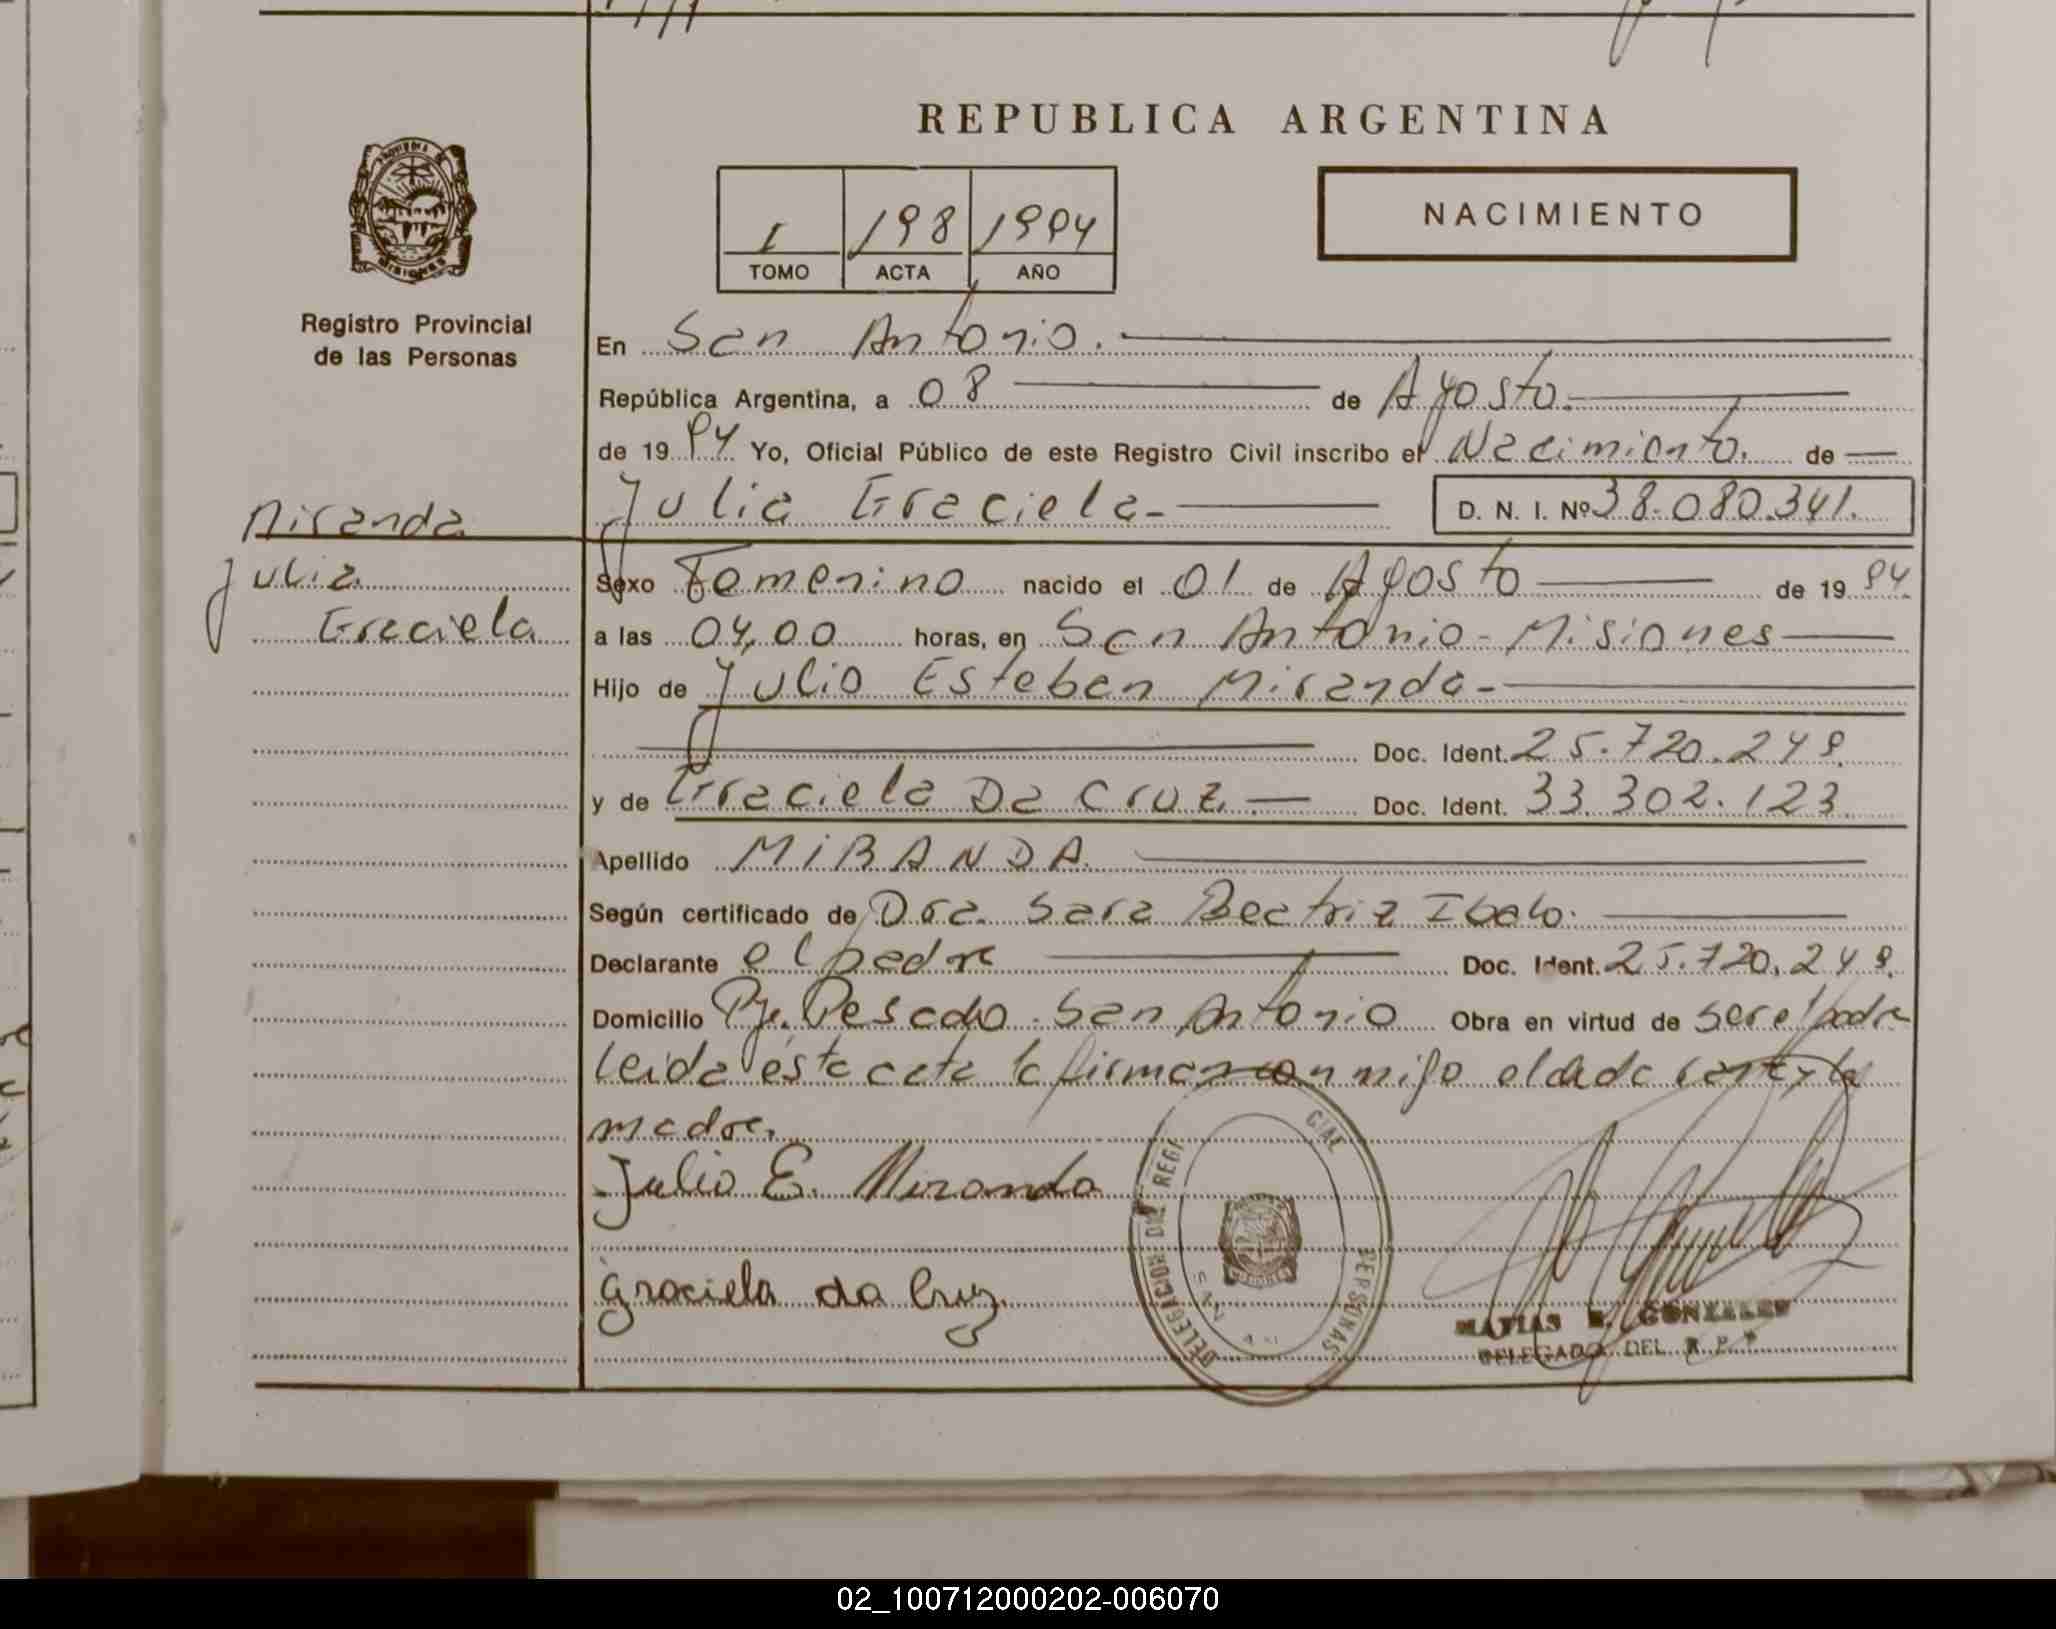 REPUBLICA ARGENTINA
PROVINCIA DE
MISIONES
Registro Provincial
de las Personas
I 198 1994
TOMO ACTA AÑO
NACIMIENTO
En San Antonio.
República Argentina, a 08 de Agosto.
de 19 94 Yo, Oficial Público de este Registro Civil inscribo el Nacimiento. de
Julia Graciela- D. N. I. Nº 38.080.341.
Miranda
Julia
Graciela
Sexo Femenino nacido el 01 de Agosto de 19 94.
a las 04,00 horas, en San Antonio- Misiones
Hijo de Julio Esteban Miranda-
Doc. Ident. 25.720.249.
y de Graciela Da Cruz. Doc. Ident. 33.302.123.
Apellido MIRANDA.
Según certificado de Dra. Sara Beatriz Ibalo.
Declarante el padre Doc. Ident. 25.720.249.
Domicilio Pje. Pesado. San Antonio Obra en virtud de ser el padre
leida ésta acta la firman conmigo el declarante y la
madre.
Julio E. Miranda
Graciela da Cruz
DELEGACION DEL REGI CIAL PERSONAS
MISIONES
MATIAS E. GONZALEZ
DELEGADO DEL R. P. P.
02_100712000202-006070